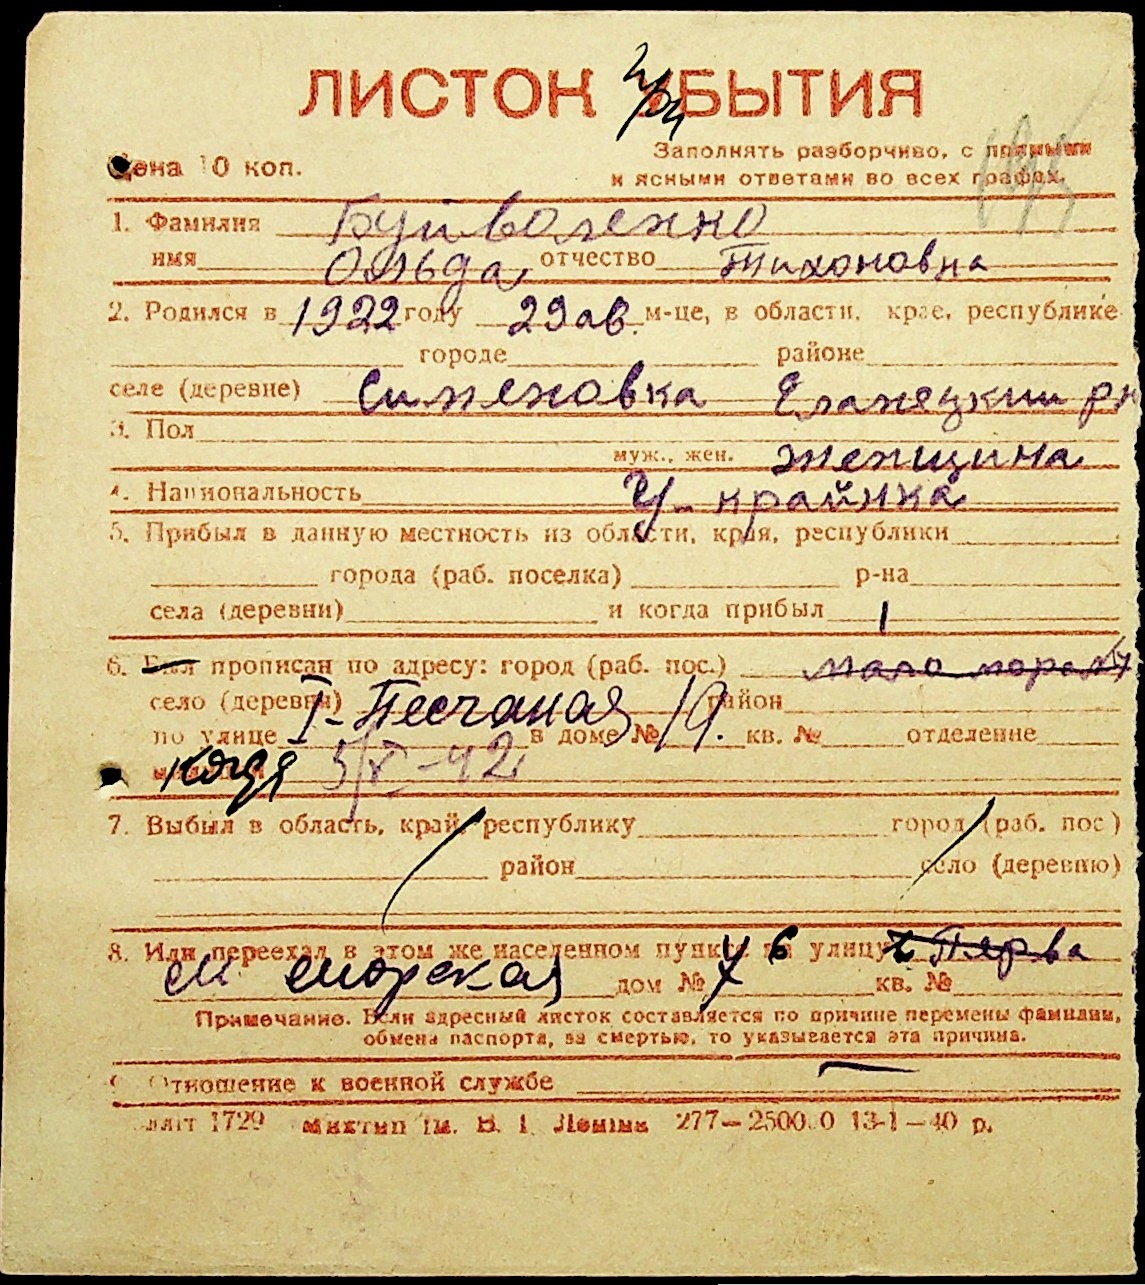 ЛИСТОК УБЫТИЯ
Цена 10 коп.
Заполнять разборчиво, с прямыми
и ясными ответами во всех графах.
1. Фамилия Буйволенко
имя Ольга отчество Тихоновна
2. Родился в 1922 году 29 ав. м-це, в области, крае, республике
городе районе
селе (деревне) Сименовка Еланецкий рн
3. Пол
муж., жен. женщина
4. Национальность У-крайнка
5. Прибыл в данную местность из области, края, республики
города (раб. поселка) р-на
села (деревни) и когда прибыл
6. Был прописан по адресу: город (раб. пос.) мало
село (деревня) I-Песчаная 19. район
по улице в доме № кв. № отделение
милиции когда 5/X-42
7. Выбыл в область, край, республику город (раб. пос)
район село (деревню)
8. Или переехал в этом же населенном пункте на улицу Перва
М морская дом № 76 кв. №
Примечание. Если адресный листок составляется по причине перемены фамилии,
обмена паспорта, за смертью, то указывается эта причина.
9. Отношение к военной службе
1729 Миктип ім. В. І. Леніна 277—25000 13-1—40 р.